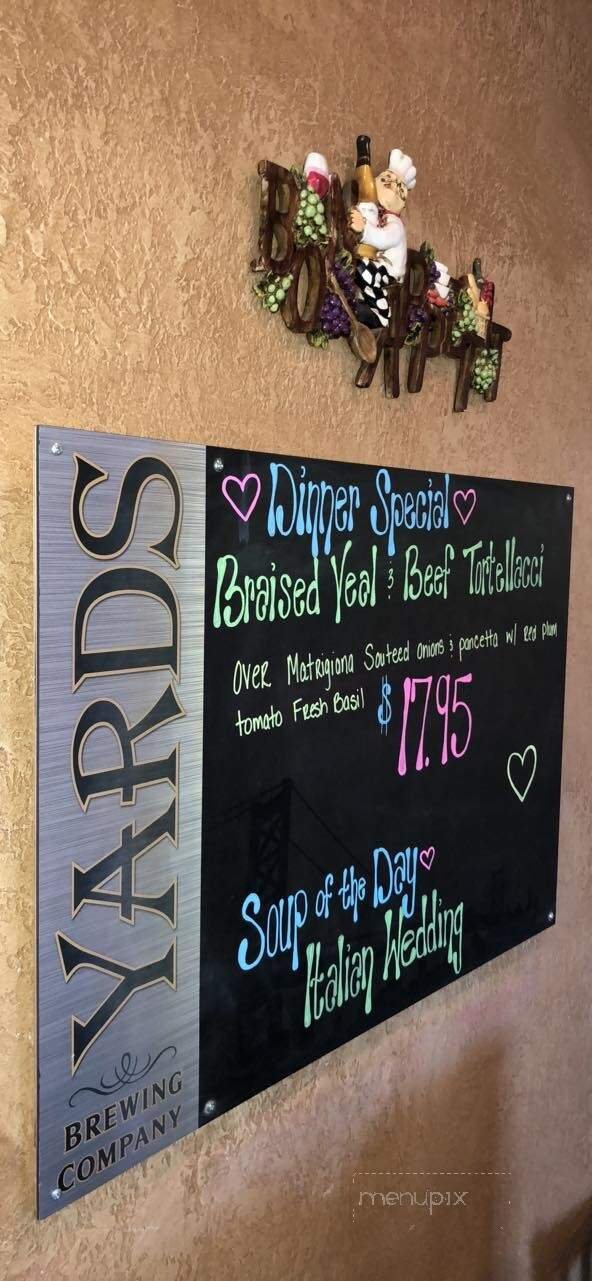 BON
APPETIT
YARDS
BREWING
COMPANY
Dinner Special
Braised Veal & Beef Tortellacci
Over Matrigiana Souteed onions & pancetta w/ Red plum
tomato Fresh Basil $17.95
Soup of the Day
Italian Wedding
menupix